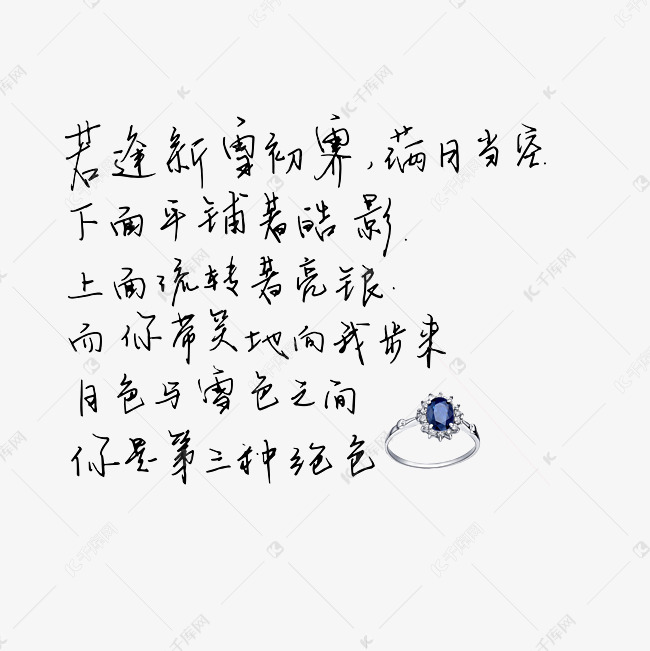 若逢新雪初霁,满月当空.
下面平铺着皓影.
上面流转着亮银.
而你带笑地向我步来
月色与雪色之间
你是第三种绝色
千库网